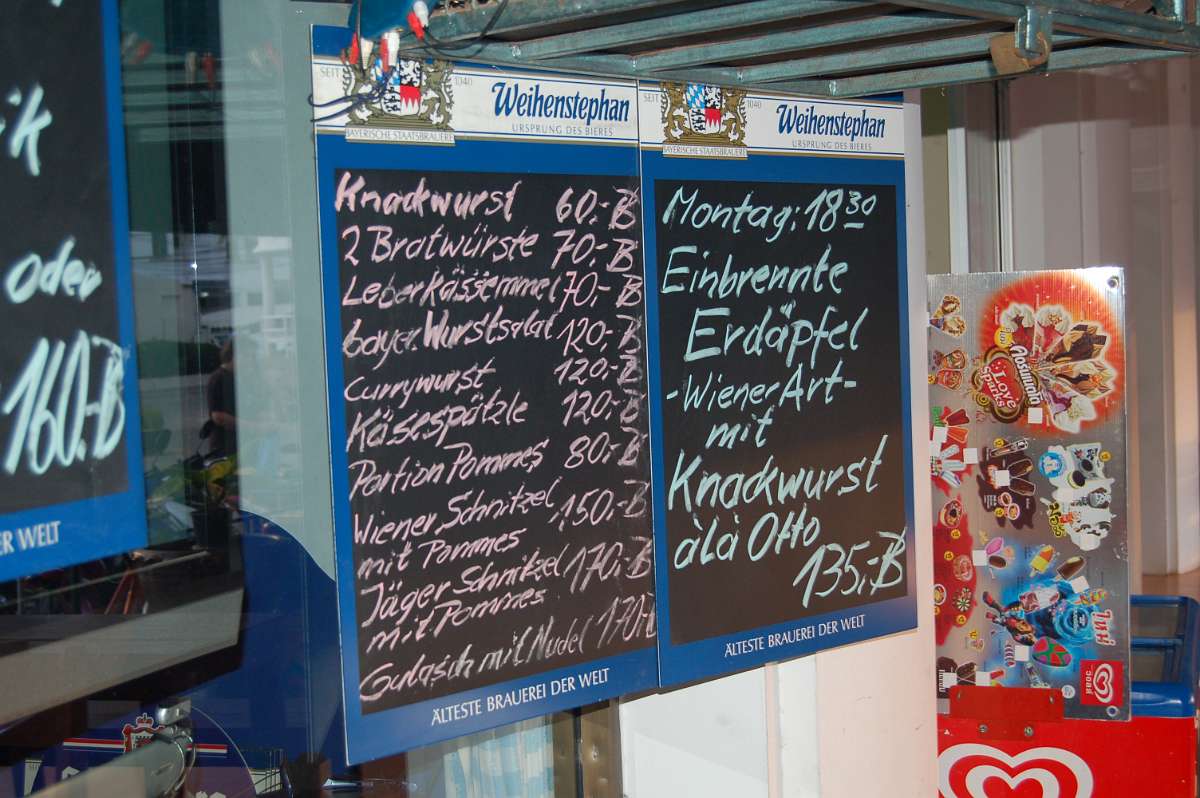 ik
oder
160.-B
R WELT
SEIT 1040
Weihenstephan
URSPRUNG DES BIERES
BAYERISCHE STAATSBRAUEREI
Knackwurst 60,-B
2 Bratwürste 70,-B
Leberkässemmel 70,-B
bayer. Wurstsalat 120,-B
Currywurst 120,-B
Käsespätzle 120,-B
Portion Pommes 80,-B
Wiener Schnitzel
mit Pommes 150,-B
Jäger Schnitzel 170,-B
mit Pommes
Gulasch mit Nudel 170,-B
ÄLTESTE BRAUEREI DER WELT
SEIT 1040
Weihenstephan
URSPRUNG DES BIERES
BAYERISCHE STAATSBRAUEREI
Montag: 18 30
Einbrennte
Erdäpfel
-Wiener Art-
mit
Knackwurst
àlà Otto
135,-B
ÄLTESTE BRAUEREI DER WELT
LOVE
Sparks